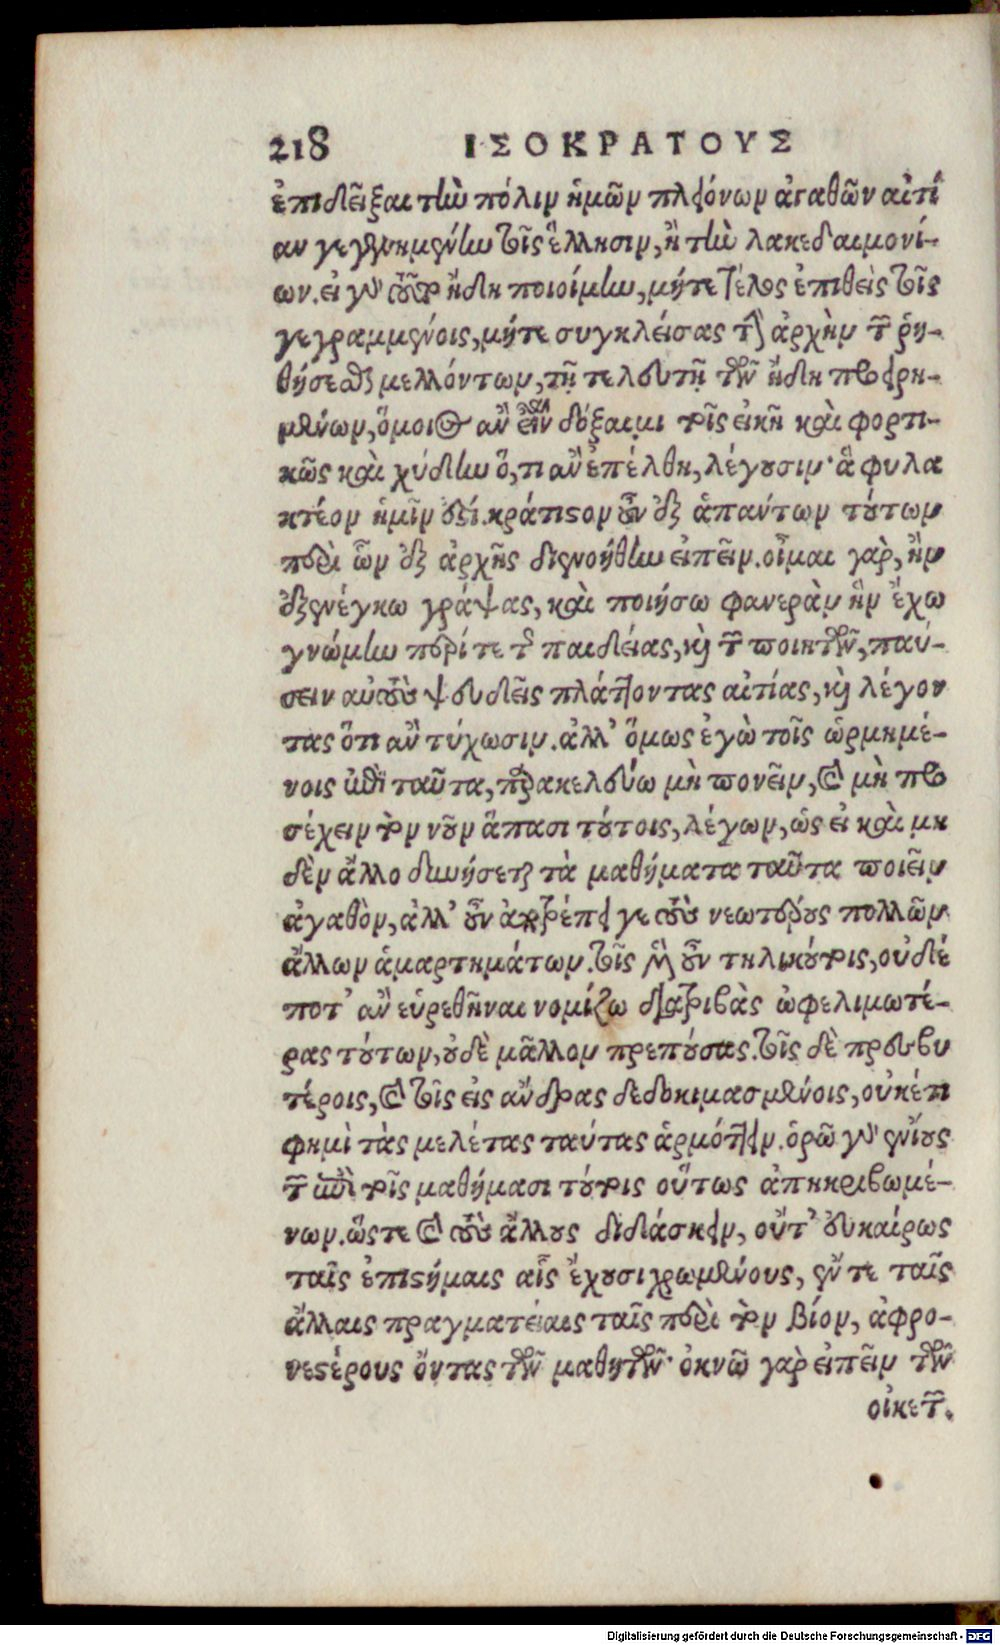 218 ΙΣΟΚΡΑΤΟΥΣ
ἐπιδεῖξαι τὴν πόλιν ἡμῶν πλειόνων ἀγαθῶν αἰτί
αν γεγενημένην τοῖς ἕλλησιν, ἢ τὴν λακεδαιμονί-
ων. εἰ γὰρ τοῦτ' ἤδη ποιοίμην, μήτε τέλος ἐπιθεὶς τοῖς
γεγραμμένοις, μήτε συγκλείσας τὴν ἀρχὴν τῶν ῥη-
θήσεσθαι μελλόντων, τῇ τελευτῇ τῶν ἤδη προειρη-
μένων, ὅμοιος ἂν εἶναι δόξαιμι τοῖς εἰκῆ καὶ φορτι-
κῶς καὶ χύδην ὅ, τι ἂν ἐπέλθῃ, λέγουσιν· ἃ φυλα
κτέον ἡμῖν ἐστί. κράτιστον οὖν ἐξ ἁπάντων τούτων
περὶ ὧν ἐξ ἀρχῆς διενοήθην εἰπεῖν. οἶμαι γὰρ, ἣν
ἐξενέγκω γράψας, καὶ ποιήσω φανερὰν ἣν ἔχω
γνώμην περί τε τῆς παιδείας, καὶ τῶν ποιητῶν, παύ-
σειν αὐτοὺς ψευδεῖς πλάττοντας αἰτίας, καὶ λέγον
τας ὅτι ἂν τύχωσιν. ἀλλ' ὅμως ἐγὼ τοῖς ὡρμημέ-
νοις ἐπὶ ταῦτα, παρακελεύω μὴ πονεῖν, καὶ μὴ προ
σέχειν τὸν νοῦν ἅπασι τούτοις, λέγων, ὡς εἰ καὶ μη
δὲν ἄλλο δυνήσεται τὰ μαθήματα ταῦτα ποιεῖν
ἀγαθὸν, ἀλλ' οὖν ἀποτρέπει γε τοὺς νεωτέρους πολλῶν
ἄλλων ἁμαρτημάτων. τοῖς μὲν οὖν τηλικούτοις, οὐδέ
ποτ' ἂν εὑρεθῆναι νομίζω διατριβὰς ὠφελιμωτέ-
ρας τούτων, οὐδὲ μᾶλλον πρεπούσας. τοῖς δὲ πρεσβυ
τέροις, καὶ τοῖς εἰς ἄνδρας δεδοκιμασμένοις, οὐκέτι
φημὶ τὰς μελέτας ταύτας ἁρμόττειν. ὁρῶ γὰρ ἐνίους
τῶν ἐπὶ τοῖς μαθήμασι τούτοις οὕτως ἀπηκριβωμέ-
νων. ὥστε καὶ τοὺς ἄλλους διδάσκειν, οὔτ' εὐκαίρως
ταῖς ἐπιστήμαις αἷς ἔχουσι χρωμένους, ἔν τε ταῖς
ἄλλαις πραγματείαις ταῖς περὶ τὸν βίον, ἀφρο-
νεστέρους ὄντας τῶν μαθητῶν· ὀκνῶ γὰρ εἰπεῖν τῶν
οἰκετῶν.
Digitalisierung gefördert durch die Deutsche Forschungsgemeinschaft - DFG